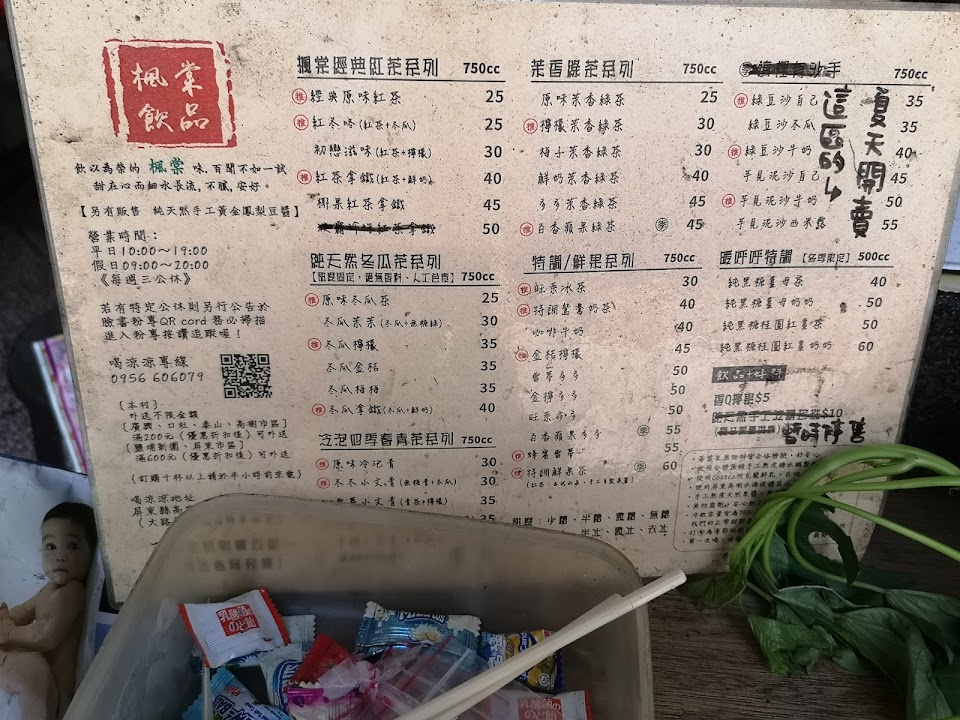 楓棠
飲品
飲以為榮的 楓棠 味，百聞不如一試
甜在心而細水長流，不膩，安好。
【另有販售 純天然手工黃金鳳梨豆醬】
營業時間：
平日10:00～19:00
假日09:00～20:00
《每週三公休》
若有特定公休則另行公告於
臉書粉專QR cord 務必掃描
進入粉專按讚追蹤喔！
喝涼涼專線
0956 606079
[本村]
外送不限金額
[廣興、口社、泰山、高樹市區]
滿200元(優惠折扣後)可外送
[鹽埔新圍、屏東市區]
滿600元(優惠折扣後)可外送
(訂購十杯以上請於半小時前來電)
喝涼涼地址
屏東縣高
(大路
楓棠經典紅茶系列 750cc
推 經典原味紅茶 25
推 紅冬咚(紅茶+冬瓜) 25
初戀滋味(紅茶+檸檬) 30
推 紅茶拿鐵(紅茶+鮮奶) 40
榭果紅茶拿鐵 45
紅茶拿鐵 50
純天然冬瓜茶系列 750cc
推 原味冬瓜茶 25
冬瓜茉茉(冬瓜+無糖綠) 30
推 冬瓜檸檬 35
冬瓜金桔 35
冬瓜梅梅 35
推 冬瓜拿鐵(冬瓜+鮮奶) 40
冷泡四季春青茶系列 750cc
推 原味冷泡青 25
推 冬冬小文青(無糖青+冬瓜) 30
35
茉香綠茶系列 750cc
原味茉香綠茶 25
推 檸檬茉香綠茶 30
梅子茉香綠茶 30
鮮奶茉香綠茶 45
多多茉香綠茶 45
推 百香蘋果綠茶 季 50
特調/鮮果系列 750cc
推 旺來冰茶 30
推 特調鴛鴦奶茶 40
咖啡牛奶 45
推 金桔檸檬 45
雪蒂多多 50
金桔多多 50
旺來多多 50
百香蘋果多多 季 55
推 蜂蜜雪蒂 55
推 特調鮮果茶 季 60
甜度：少糖、半糖、微糖、無糖
750cc
推 綠豆沙自己 35
綠豆沙冬瓜 35
推 綠豆沙牛奶 40
芋見泥沙自己 45
推 芋見泥沙牛奶 50
芋見泥沙西米露 55
這區的
夏天開賣
暖呼呼特調 [冬季限定] 500cc
純黑糖薑母茶 40
純黑糖薑母奶奶 50
純黑糖桂圓紅棗茶 50
純黑糖桂圓紅棗奶奶 60
飲品+好料
$5
$10
暫時停售
乳酸菌
のど飴
乳酸菌の
のど飴